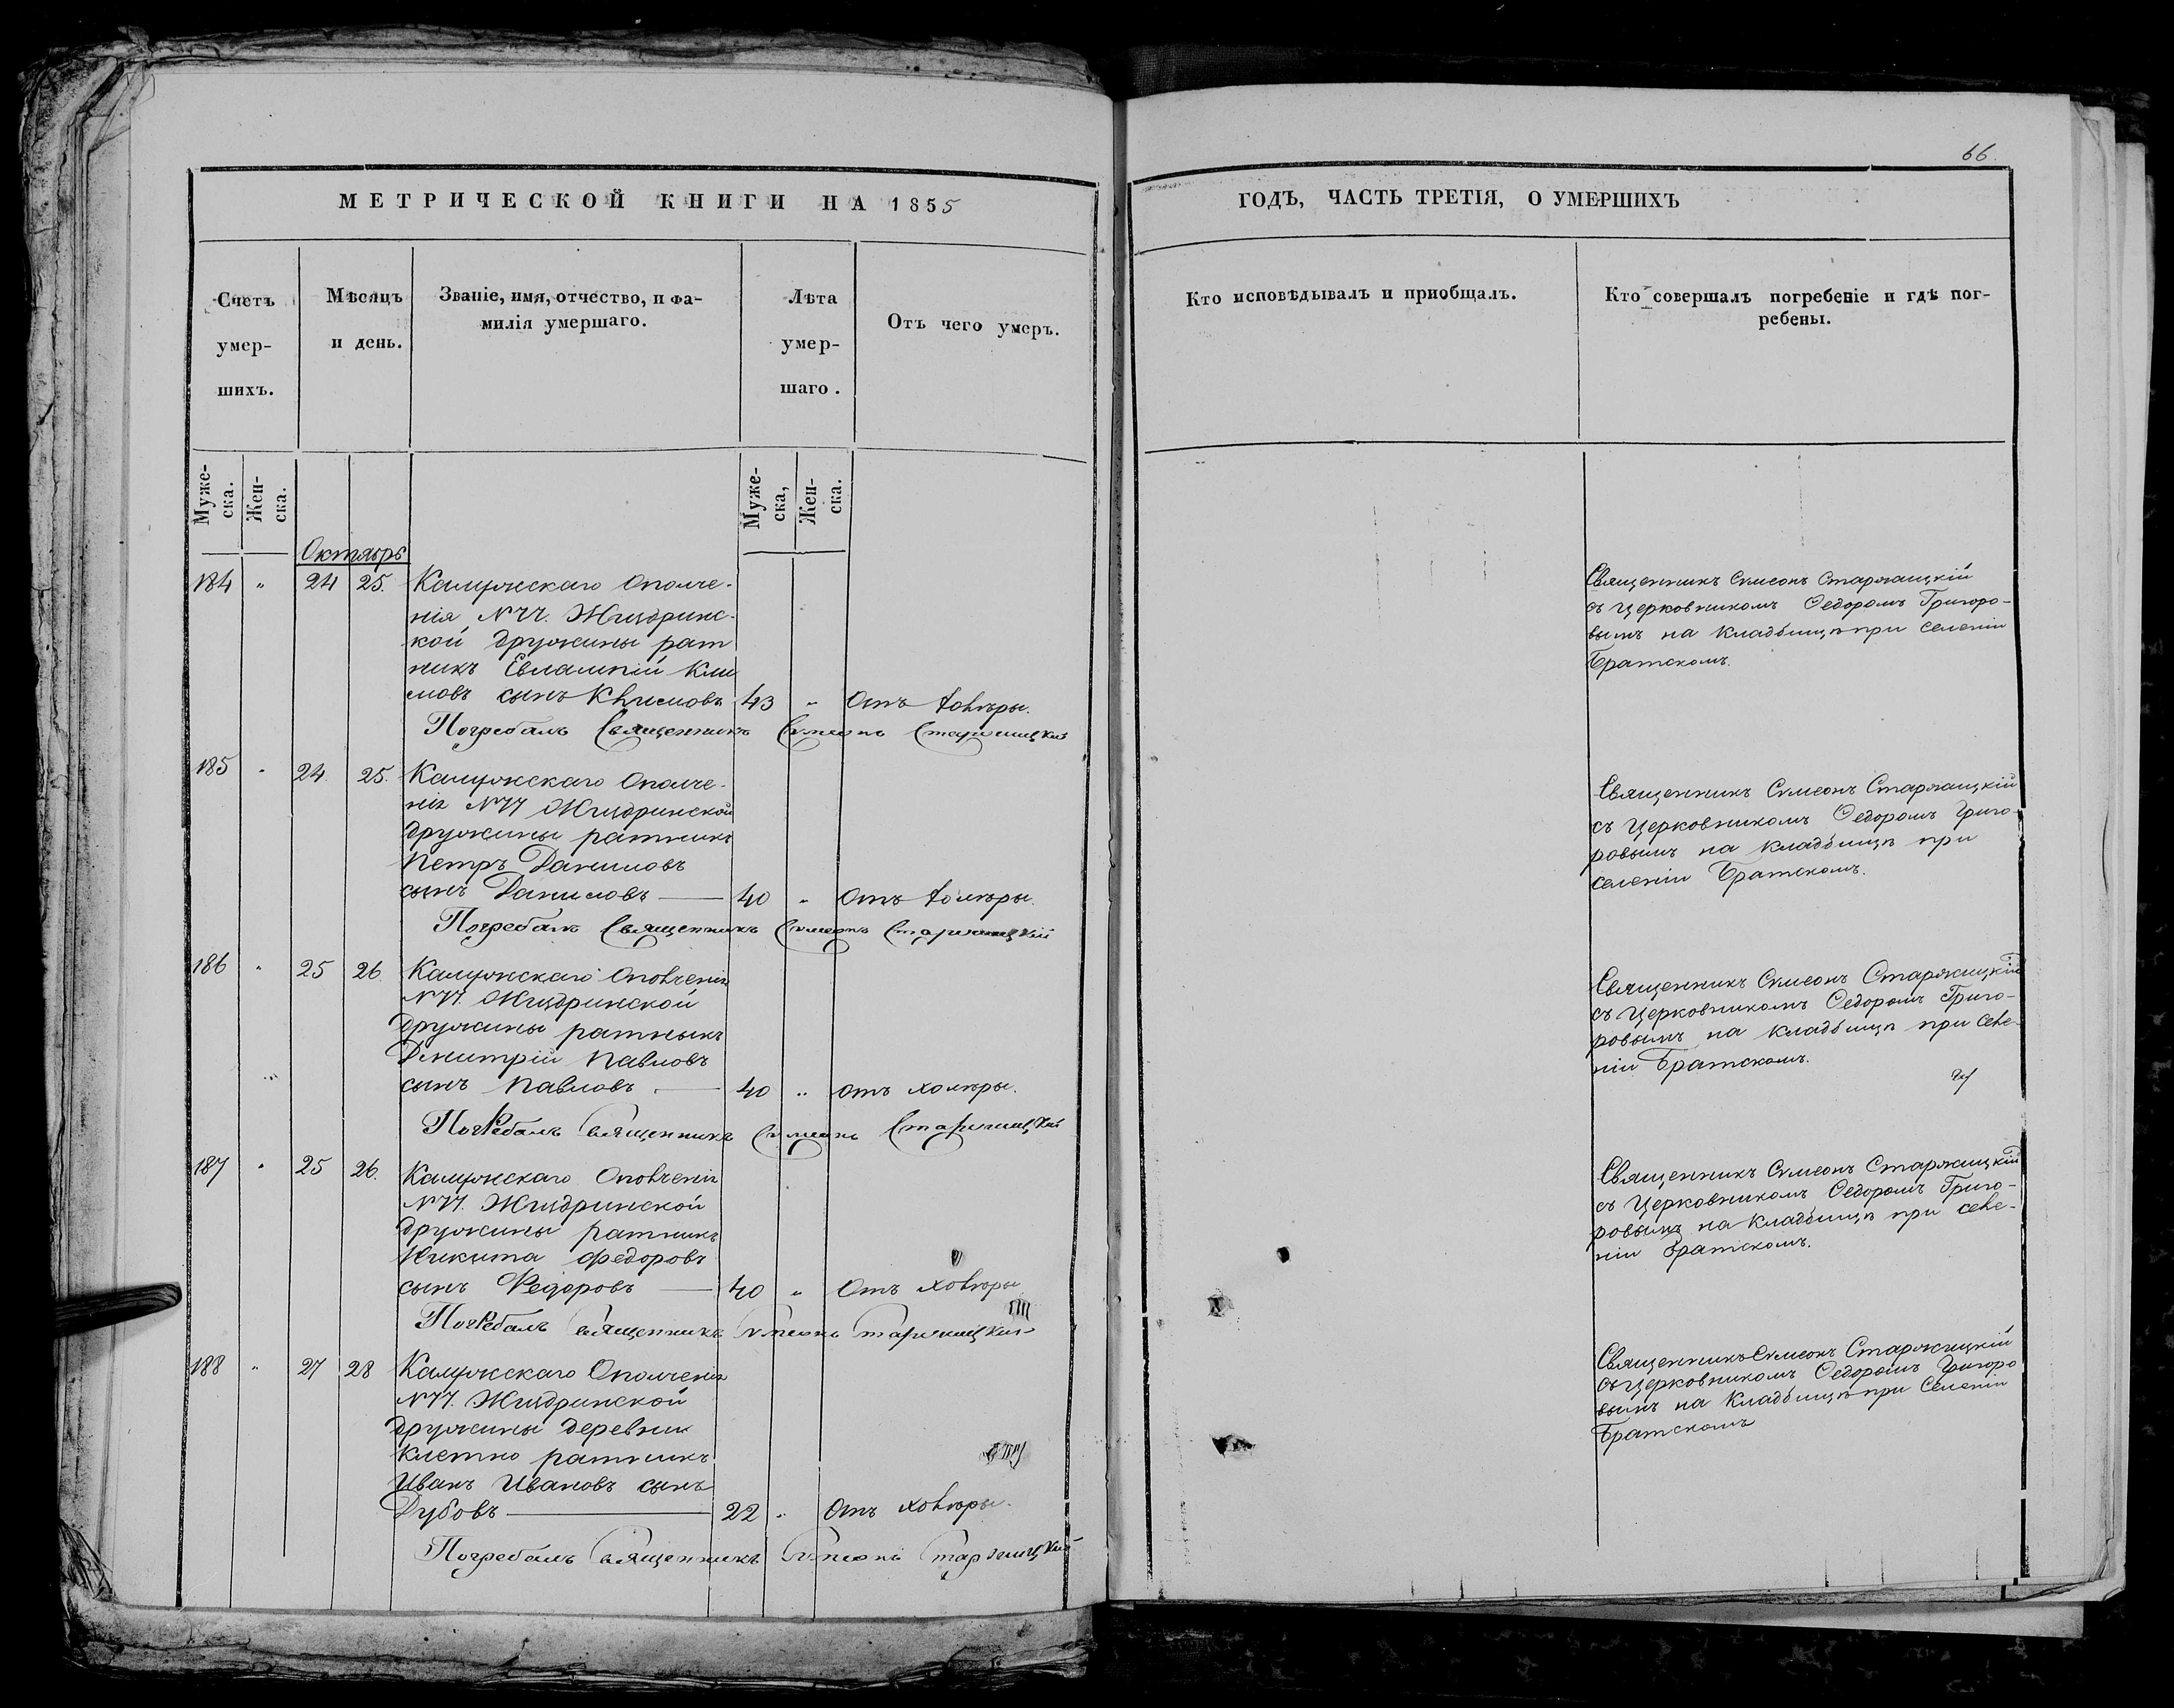 66.
МЕТРИЧЕСКОЙ КНИГИ НА 1855
ГОДЪ, ЧАСТЬ ТРЕТІЯ, О УМЕРШИХЪ
Счетъ
умер-
шихъ.
Мѣсяцъ
и день.
Званіе, имя, отчество, и фа-
милія умершаго.
Лѣта
умер-
шаго.
Отъ чего умеръ.
Кто исповѣдывалъ и приобщалъ.
Кто совершалъ погребеніе и гдѣ пог-
ребены.
Муже-
ска.
Жен-
ска.
Муже-
ска,
Жен-
ска.
Октябрь
184 „ 24 25. Калужскаго Ополче-
нія №77. Жиздринс-
кой дружины рат
никъ Евлампій Кли
мовъ сынъ Климовъ 43 „ Отъ холѣры.
Погребалъ Священникъ Сѵмеонъ Старжицкій
Священникъ Сѵмеонъ Старжицкій
съ Церковникомъ Ѳедоромъ Григоро-
вымъ на кладбищѣ при Селеніи
Братскомъ.
185 „ 24. 25. Калужскаго Ополче-
нія №77 Жиздринской
дружины ратникъ
Петръ Даниловъ
сынъ Даниловъ 40 „ Отъ холѣры.
Погребалъ Священникъ Сѵмеонъ Старжицкій
Священникъ Сѵмеонъ Старжицкій
съ Церковникомъ Ѳедоромъ Григо-
ровымъ на кладбищѣ при
селеніи Братскомъ.
186 „ 25 26. Калужскаго Ополченія
№77. Жиздринской
дружины ратникъ
Дмитрій Павловъ
сынъ Павловъ 40 „ отъ холѣры.
Погребалъ Священникъ Сѵмеонъ Старжицкій
Священникъ Сѵмеонъ Старжицкій
съ Церковникомъ Ѳедоромъ Григо-
ровымъ на кладбищѣ при селе-
ніи Братскомъ.
187 „ 25 26. Калужскаго Ополченія
№77. Жиздринской
дружины ратникъ
Никита Федоровъ
сынъ Федоровъ 40 „ Отъ холѣры
Погребалъ Священникъ Сѵмеонъ Старжицкій
Священникъ Сѵмеонъ Старжицкій
съ Церковникомъ Ѳедоромъ Григо-
ровымъ на кладбищѣ при селе-
ніи Братскомъ.
188 „ 27 28 Калужскаго Ополченія
№77. Жиздринской
дружины деревни
Клетно ратникъ
Иванъ Ивановъ сынъ
Дубовъ 22 „ Отъ холѣры.
Погребалъ Священникъ Сѵмеонъ Старжицкій
Священникъ Сѵмеонъ Старжицкій
съ Церковникомъ Ѳедоромъ Григоро
вымъ на Кладбищѣ при Селеніи
Братскомъ